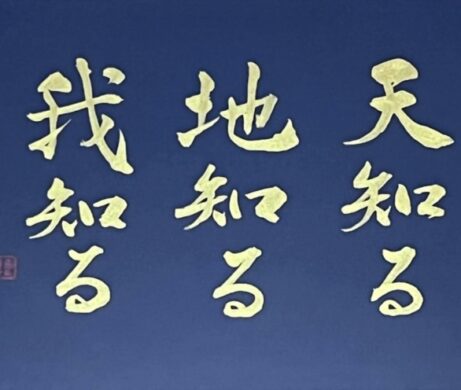 天知る
地知る
我知る